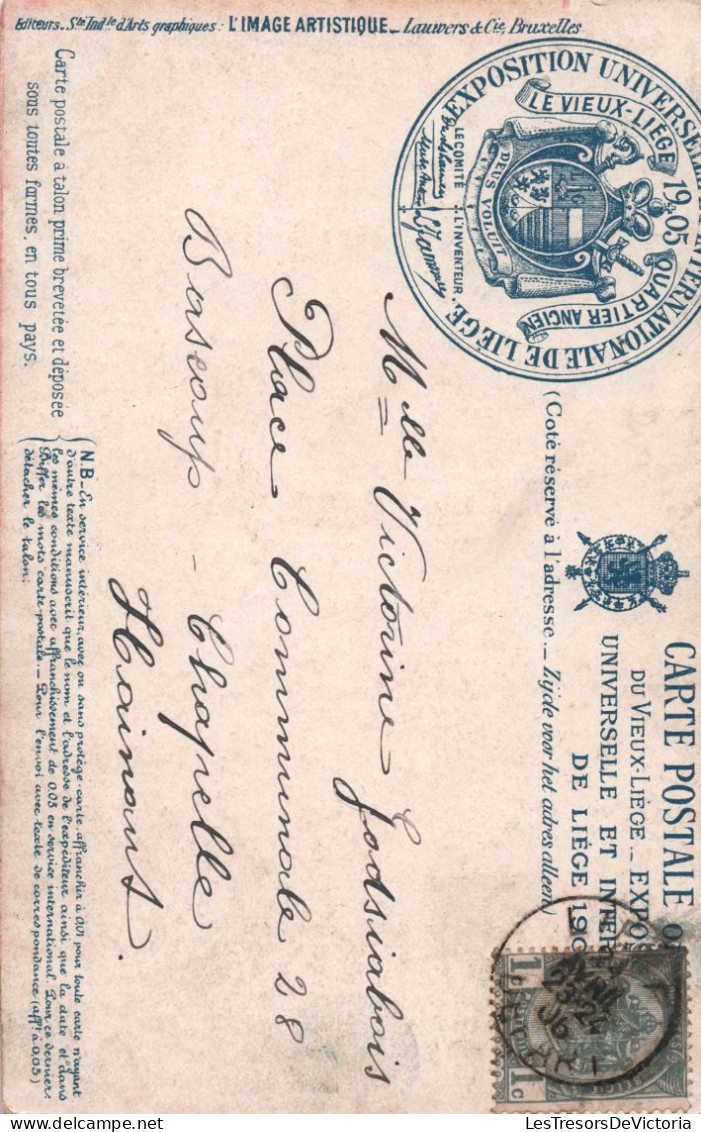 Editeurs. Sté Indle d'Arts graphiques: L'IMAGE ARTISTIQUE_ Lauwers & Cie, Bruxelles
EXPOSITION UNIVERSELLE INTERNATIONALE DE LIÈGE.
LE VIEUX-LIÈGE
1905
QUARTIER ANCIEN
DEUS VOLUIT
LE COMITÉ
L'INVENTEUR.
CARTE POSTALE
DU VIEUX-LIÈGE _ EXPO
UNIVERSELLE ET INTER
DE LIÈGE 190
(Coté réservé à l'adresse._ Zijde voor het adres alleen)
Mlle Victorine Godsiabois
Place Communale 28
Bascoup - Chapelle
Hainaut.
Carte postale à talon prime brevetée et déposée
sous toutes formes, en tous pays.
N.B_ En service intérieur, avec ou sans protège-carte, affranchir à 0,01 pour toute carte n'ayant
d'autre texte manuscrit que le nom et l'adresse de l'expéditeur ainsi que la date et dans
les mêmes conditions avec affranchissement de 0,05 en service international. Pour ce dernier:
Biffer les mots carte-postale._ Pour l'envoi avec texte de correspondance (afft à 0,05)
détacher le talon.
1c 1c
23-24
06
LesTresorsDeVictoria
LesTresorsDeVictoria.delcampe.net